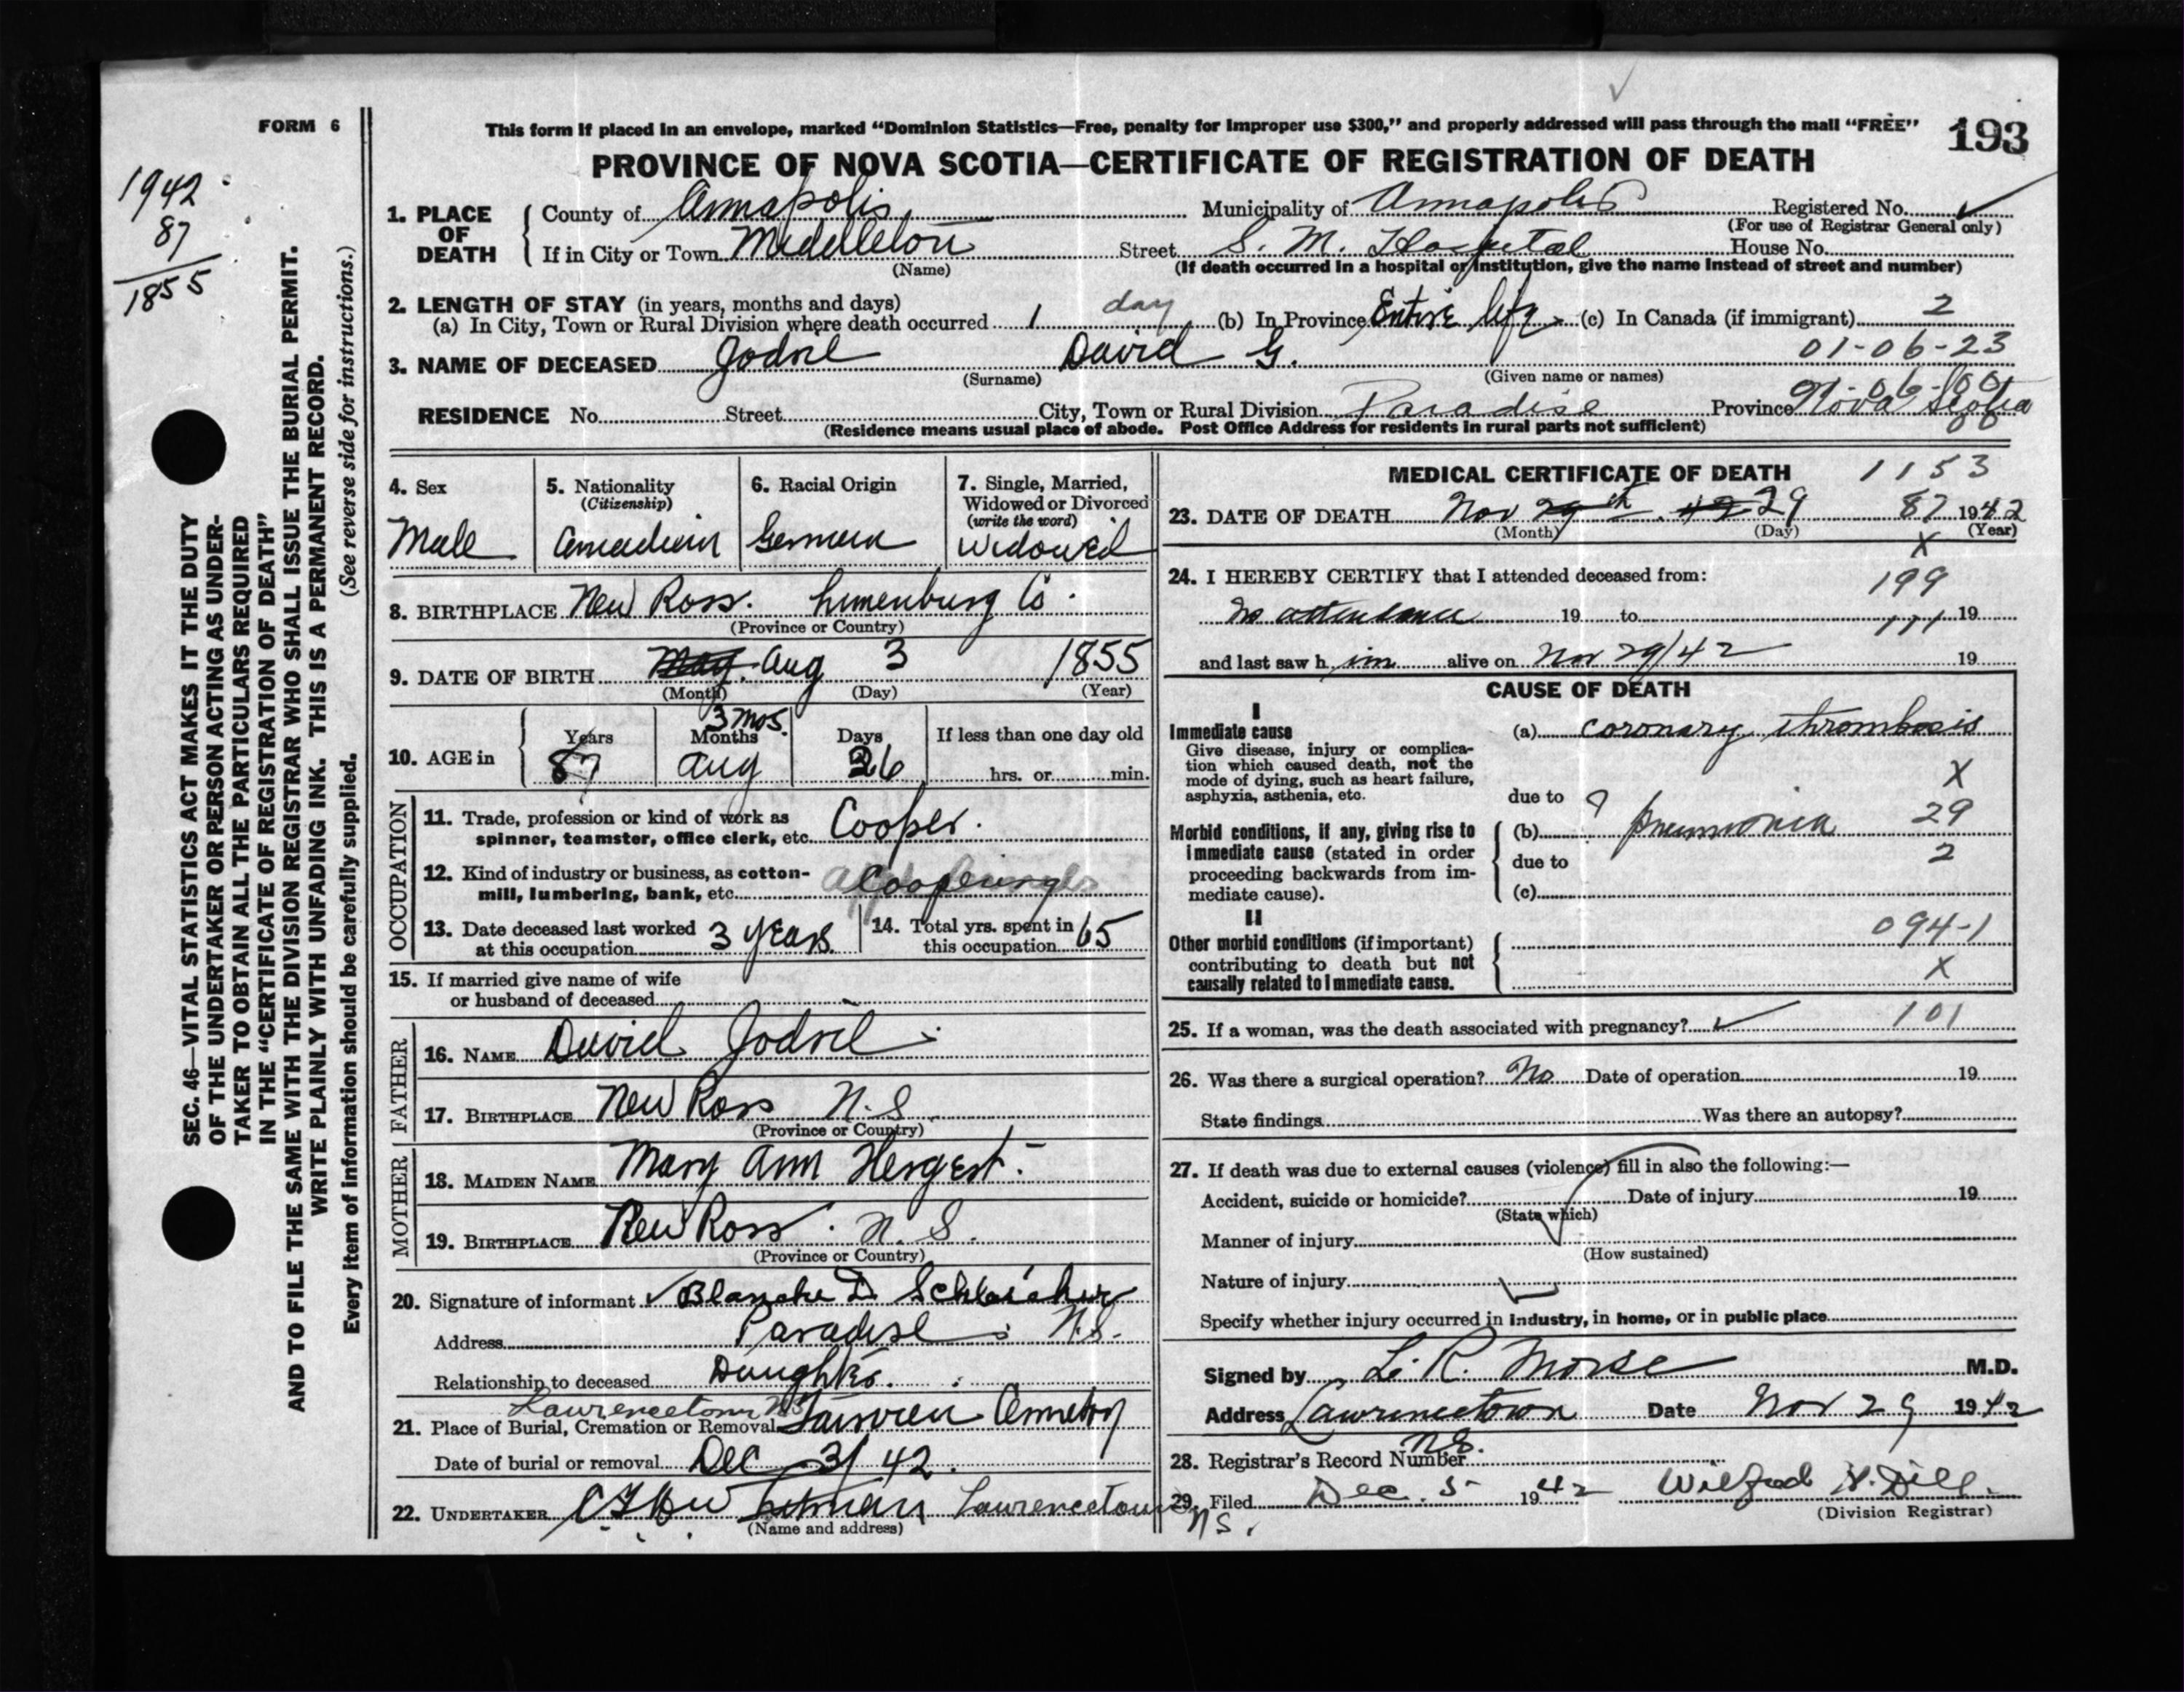 FORM 6
This form if placed in an envelope, marked “Dominion Statistics—Free, penalty for improper use $300,” and properly addressed will pass through the mail “FREE”
193
PROVINCE OF NOVA SCOTIA—CERTIFICATE OF REGISTRATION OF DEATH
1942
87
1855
SEC. 46—VITAL STATISTICS ACT MAKES IT THE DUTY
OF THE UNDERTAKER OR PERSON ACTING AS UNDER-
TAKER TO OBTAIN ALL THE PARTICULARS REQUIRED
IN THE “CERTIFICATE OF REGISTRATION OF DEATH”
AND TO FILE THE SAME WITH THE DIVISION REGISTRAR WHO SHALL ISSUE THE BURIAL PERMIT.
WRITE PLAINLY WITH UNFADING INK. THIS IS A PERMANENT RECORD.
Every item of information should be carefully supplied. (See reverse side for instructions.)
1. PLACE OF DEATH
County of Annapolis Municipality of Annapolis Registered No.
(For use of Registrar General only)
If in City or Town Middleton Street S. M. Hospital House No.
(Name) (If death occurred in a hospital or institution, give the name instead of street and number)
2. LENGTH OF STAY (in years, months and days)
(a) In City, Town or Rural Division where death occurred 1 day (b) In Province Entire life (c) In Canada (if immigrant) 2
01-06-23
3. NAME OF DECEASED Jodril David G.
(Surname) (Given name or names)
01-06-00
RESIDENCE No. Street City, Town or Rural Division Paradise Province Nova Scotia
(Residence means usual place of abode. Post Office Address for residents in rural parts not sufficient)
4. Sex
Male
5. Nationality
(Citizenship)
Canadian
6. Racial Origin
German
7. Single, Married,
Widowed or Divorced
(write the word)
Widowed
8. BIRTHPLACE New Ross. Lunenburg Co.
(Province or Country)
9. DATE OF BIRTH May Aug 3 1855
(Month) (Day) (Year)
10. AGE in
Years 87
3 mos.
Months Aug
Days 26
If less than one day old
hrs. or min.
OCCUPATION
11. Trade, profession or kind of work as
spinner, teamster, office clerk, etc. Cooper.
12. Kind of industry or business, as cotton-
mill, lumbering, bank, etc. Coopering
13. Date deceased last worked
at this occupation 3 years
14. Total yrs. spent in
this occupation 65
15. If married give name of wife
or husband of deceased
FATHER
16. NAME David Jodril
17. BIRTHPLACE New Ross N.S.
(Province or Country)
MOTHER
18. MAIDEN NAME Mary Ann Hergest
19. BIRTHPLACE New Ross. N.S.
(Province or Country)
20. Signature of informant Blanche D. Schleicher
Address Paradise N.S.
Relationship to deceased Daughter.
Lawrencetown NS
21. Place of Burial, Cremation or Removal Cemetery
Date of burial or removal Dec 3/42.
22. UNDERTAKER Lawrencetown NS.
(Name and address)
MEDICAL CERTIFICATE OF DEATH 1153
23. DATE OF DEATH Nov 29th. 42 29 87 1942
(Month) (Day) (Year)
X
24. I HEREBY CERTIFY that I attended deceased from: 199
No attendance 19 to 111 19
and last saw h im alive on Nov 29/42 19
CAUSE OF DEATH
I
Immediate cause
Give disease, injury or complica-
tion which caused death, not the
mode of dying, such as heart failure,
asphyxia, asthenia, etc.
(a) coronary thrombosis
X
due to ?
Morbid conditions, if any, giving rise to
immediate cause (stated in order
proceeding backwards from im-
mediate cause).
(b) pneumonia 29
due to 2
(c)
II
Other morbid conditions (if important)
contributing to death but not
causally related to immediate cause.
094-1
X
25. If a woman, was the death associated with pregnancy? 101
26. Was there a surgical operation? No Date of operation 19
State findings Was there an autopsy?
27. If death was due to external causes (violence) fill in also the following:—
Accident, suicide or homicide? Date of injury 19
(State which)
Manner of injury
(How sustained)
Nature of injury
Specify whether injury occurred in industry, in home, or in public place
Signed by L. R. Morse M.D.
Address Lawrencetown Date Nov 29 1942
NS.
28. Registrar's Record Number
29. Filed Dec. 5 1942 Wilfred H. Dill.
(Division Registrar)